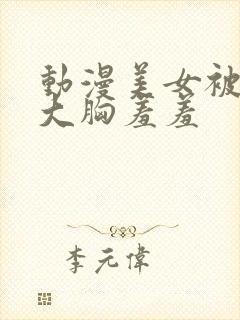 動漫美女被
大胸羞羞
李元偉